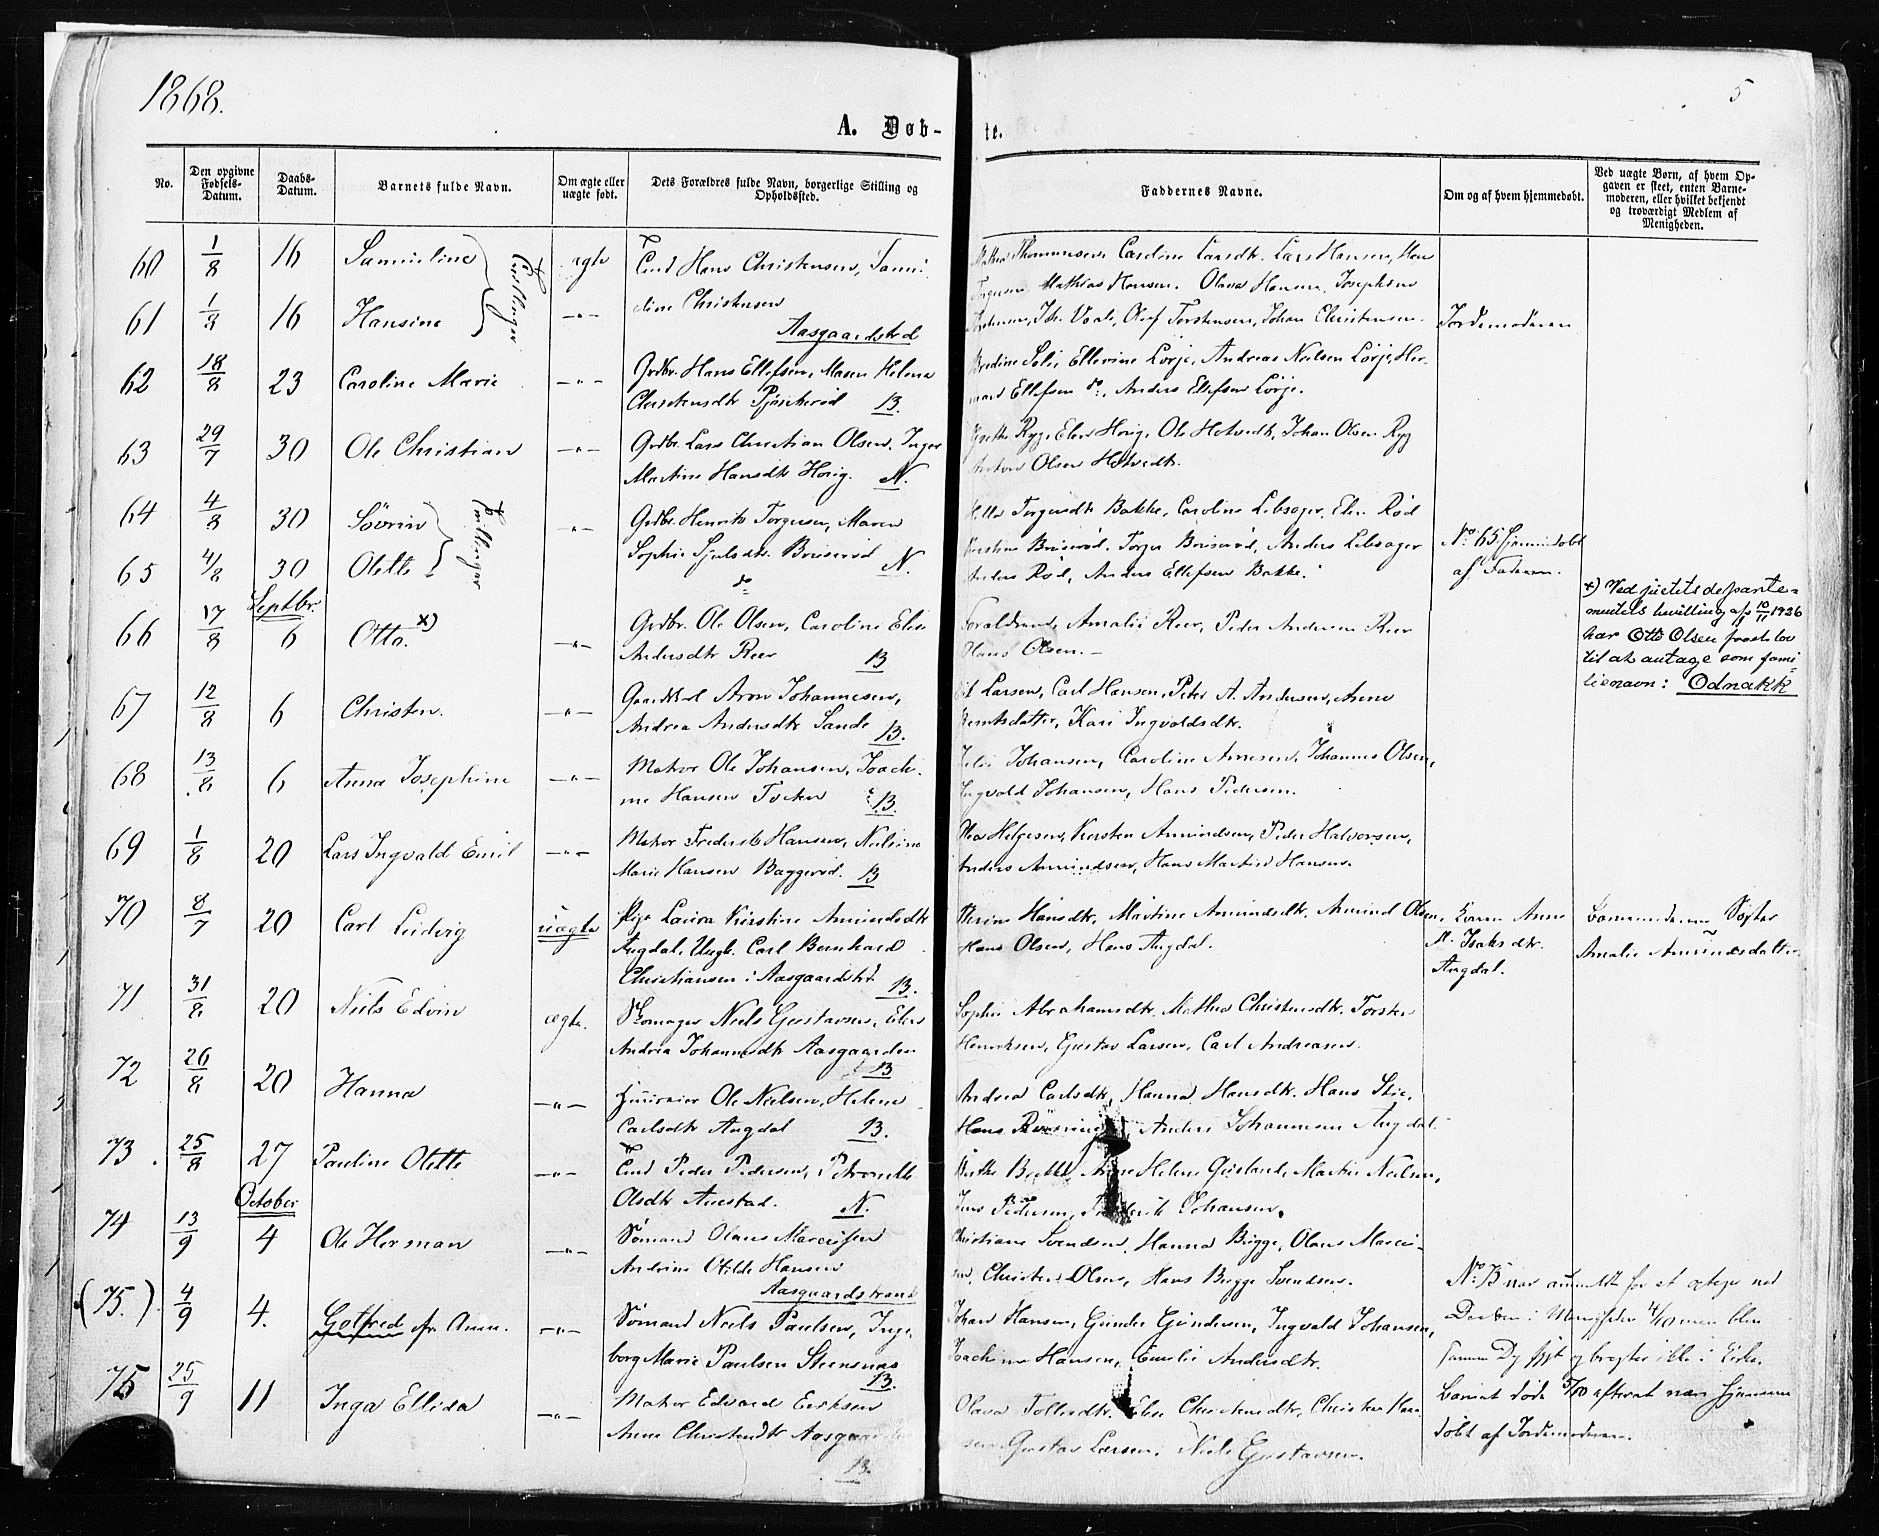 1868.
5
A. Døb-
te.
No.
Den opgivne Fødsels-Datum.
Daabs-Datum.
Barnets fulde Navn.
Om ægte eller uægte født.
Dets Forældres fulde Navn, borgerlige Stilling og Opholdssted.
Faddernes Navne.
Om og af hvem hjemmedøbt.
Ved uægte Børn, af hvem Opgaven er skeet, enten Barnemoderen, eller hvilket bekjendt og troværdigt Medlem af Menigheden.
60 1/8 16 Samueline Tvillinger ægte Hans Christensen,
Thommesen, Caroline Larsdtr. Lars Hansen,
Mathias Hansen. Olava Hansen, Josephine
61 1/8 16 Hansine -"- Christensen
Aasgaardstrd
Olaf Torstensen, Johan Christensen. Jordemoderen
62 18/8 23 Caroline Marie -"- Grdbr. Hans Ellefsen, Maren Helena
Christensdtr 13.
Ellevine Lørje, Andreas Neilsen Lørje, Her-
man Ellefsen do, Anders Ellefsen Lørje.
63 29/7 30 Ole Christian -"- Grdbr. Lars Christian Olsen, Inger
Martine Hansdtr Horig. N.
Ole Olsen Ryg
Anton Olsen
64 4/8 30 Søvrin Tvillinger -"- Grdbr. Henrik Torgersen, Maren
Sophie Bruserød N.
Torgersdtr Bakke, Caroline Lebsager, Elen Rød
65 4/8 30 Olette do
Bruserød. Torger Bruserød, Anders Lebsager
Anders Rød, Anders Ellefsen Bakke.
No 65 hjemmedøbt
af Faderen.
Septbr.
66 17/8 6 Otto. x) -"- Grdbr. Ole Olsen, Caroline Elise
Andersdtr Reer 13
Forældrene, Amalie Reer, Peder Andersen Reer
Hans Olsen.-
x) Ved justitsdeparte-
mentets bevilling af 10/11 1926
har Otto Olsen faaet lov
til at antage som fami-
lienavn: Odnakk
67 12/8 6 Christen. -"- Aron Johannesen,
Andrea Andersdtr Sande 13.
Larsen, Carl Hansen, Peter A. Andersen, Anne
Berntsdatter, Kari Ingvoldsdtr.
68 13/8 6 Anna Josephine -"- Matros Ole Johansen, Joach-
ine Hansen 13.
Johansen, Caroline Arnesen, Johannes Olsen,
Ingvald Johansen, Hans Pedersen.
69 1/8 20 Lars Ingvald Emil -"- Matros Frederik Hansen, Neilsine
Marie Hansen Baggerød. 13
Helgesen, Kirsten Amundsen, Peder Halvorsen,
Anders Amundsen, Hans Martin Hansen.
70 8/7 20 Carl Ludvig uægte Pige Laura Kirstine Amundsdtr
Augdal. Ungk. Carl Bernhard
Christiansen i Aasgaardstrd 13.
Hansdtr, Martine Amundsdtr. Amund Olsen,
Hans Olsen, Hans Augdal.
Anne
M. Isaksdtr.
Augdal.
Barnemoderens Søster
Amalie Amundsdatter
71 31/8 20 Niels Edvin ægte. Skomager Niels Gustavsen, Elen
Andrea Johannesdtr Aasgaarden
13
Sophie Abrahamsdtr. Mathea Christensdtr. Torsten
Henriksen, Gustav Larsen, Carl Andreasen.
72 26/8 20 Hanna -"- Huuseier Ole Neilsen, Helene
Carlsdtr Augdal 13.
Andrea Carlsdtr, Hanna Hansdtr. Hans Stie,
Hans Anders Johannesen Augdal.
73. 25/8 27 Pauline Olette -"- Peder Pedersen, Petronelle
Olsdtr Auestad. N.
Helene Martin Neilsen,
Jens Pedersen, Frederik Johansen.
October
74 13/9 4 Ole Herman -"- Sømand Olaus Marcussen
Andrine Otilde Hansen
Aasgaardstrand
Christiane Svendsen, Hanna Bugge, Olaus Marcu-
sen, Christen Olsen, Hans Bugge Svendsen.
(75.) 4/9 4. Gotfred -"- Sømand Neels Paulsen, Inge-
borg Marie Paulsen Steensnæs
13.
Johan Hansen, Gunder Gundersen, Ingvald Johansen,
Joachim Hansen, Emilie Andersdtr.
No 75 var anmeldt for at
Daaben i 4/10 men blev
samme Dg sygt og bragtes ikke i Kirke.
Barnet døde 5/10 efterat være hjemme
døbt af Jordemoderen.
75 25/9 11 Inga Ellida -"- Matros Edvard Eriksen
Anne Christensdtr Aasgaarden
13.
Olava Elise Christensdtr, Christen Han-
sen, Gustav Larsen, Niels Gustavsen.